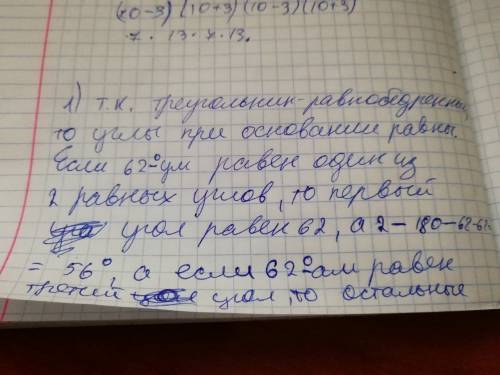 (10-3)(10+3)(10-3)(10+3)
7. 13. 7. 13.
1) т.к. треугольник-равнобедренны,
то углы при основании равны.
Если 62º-ум равен один из
2 равных углов, то первый
угол равен 62, а 2-180-62-62
= 56°, а если 62º-ам равен
третий угол, то остальные